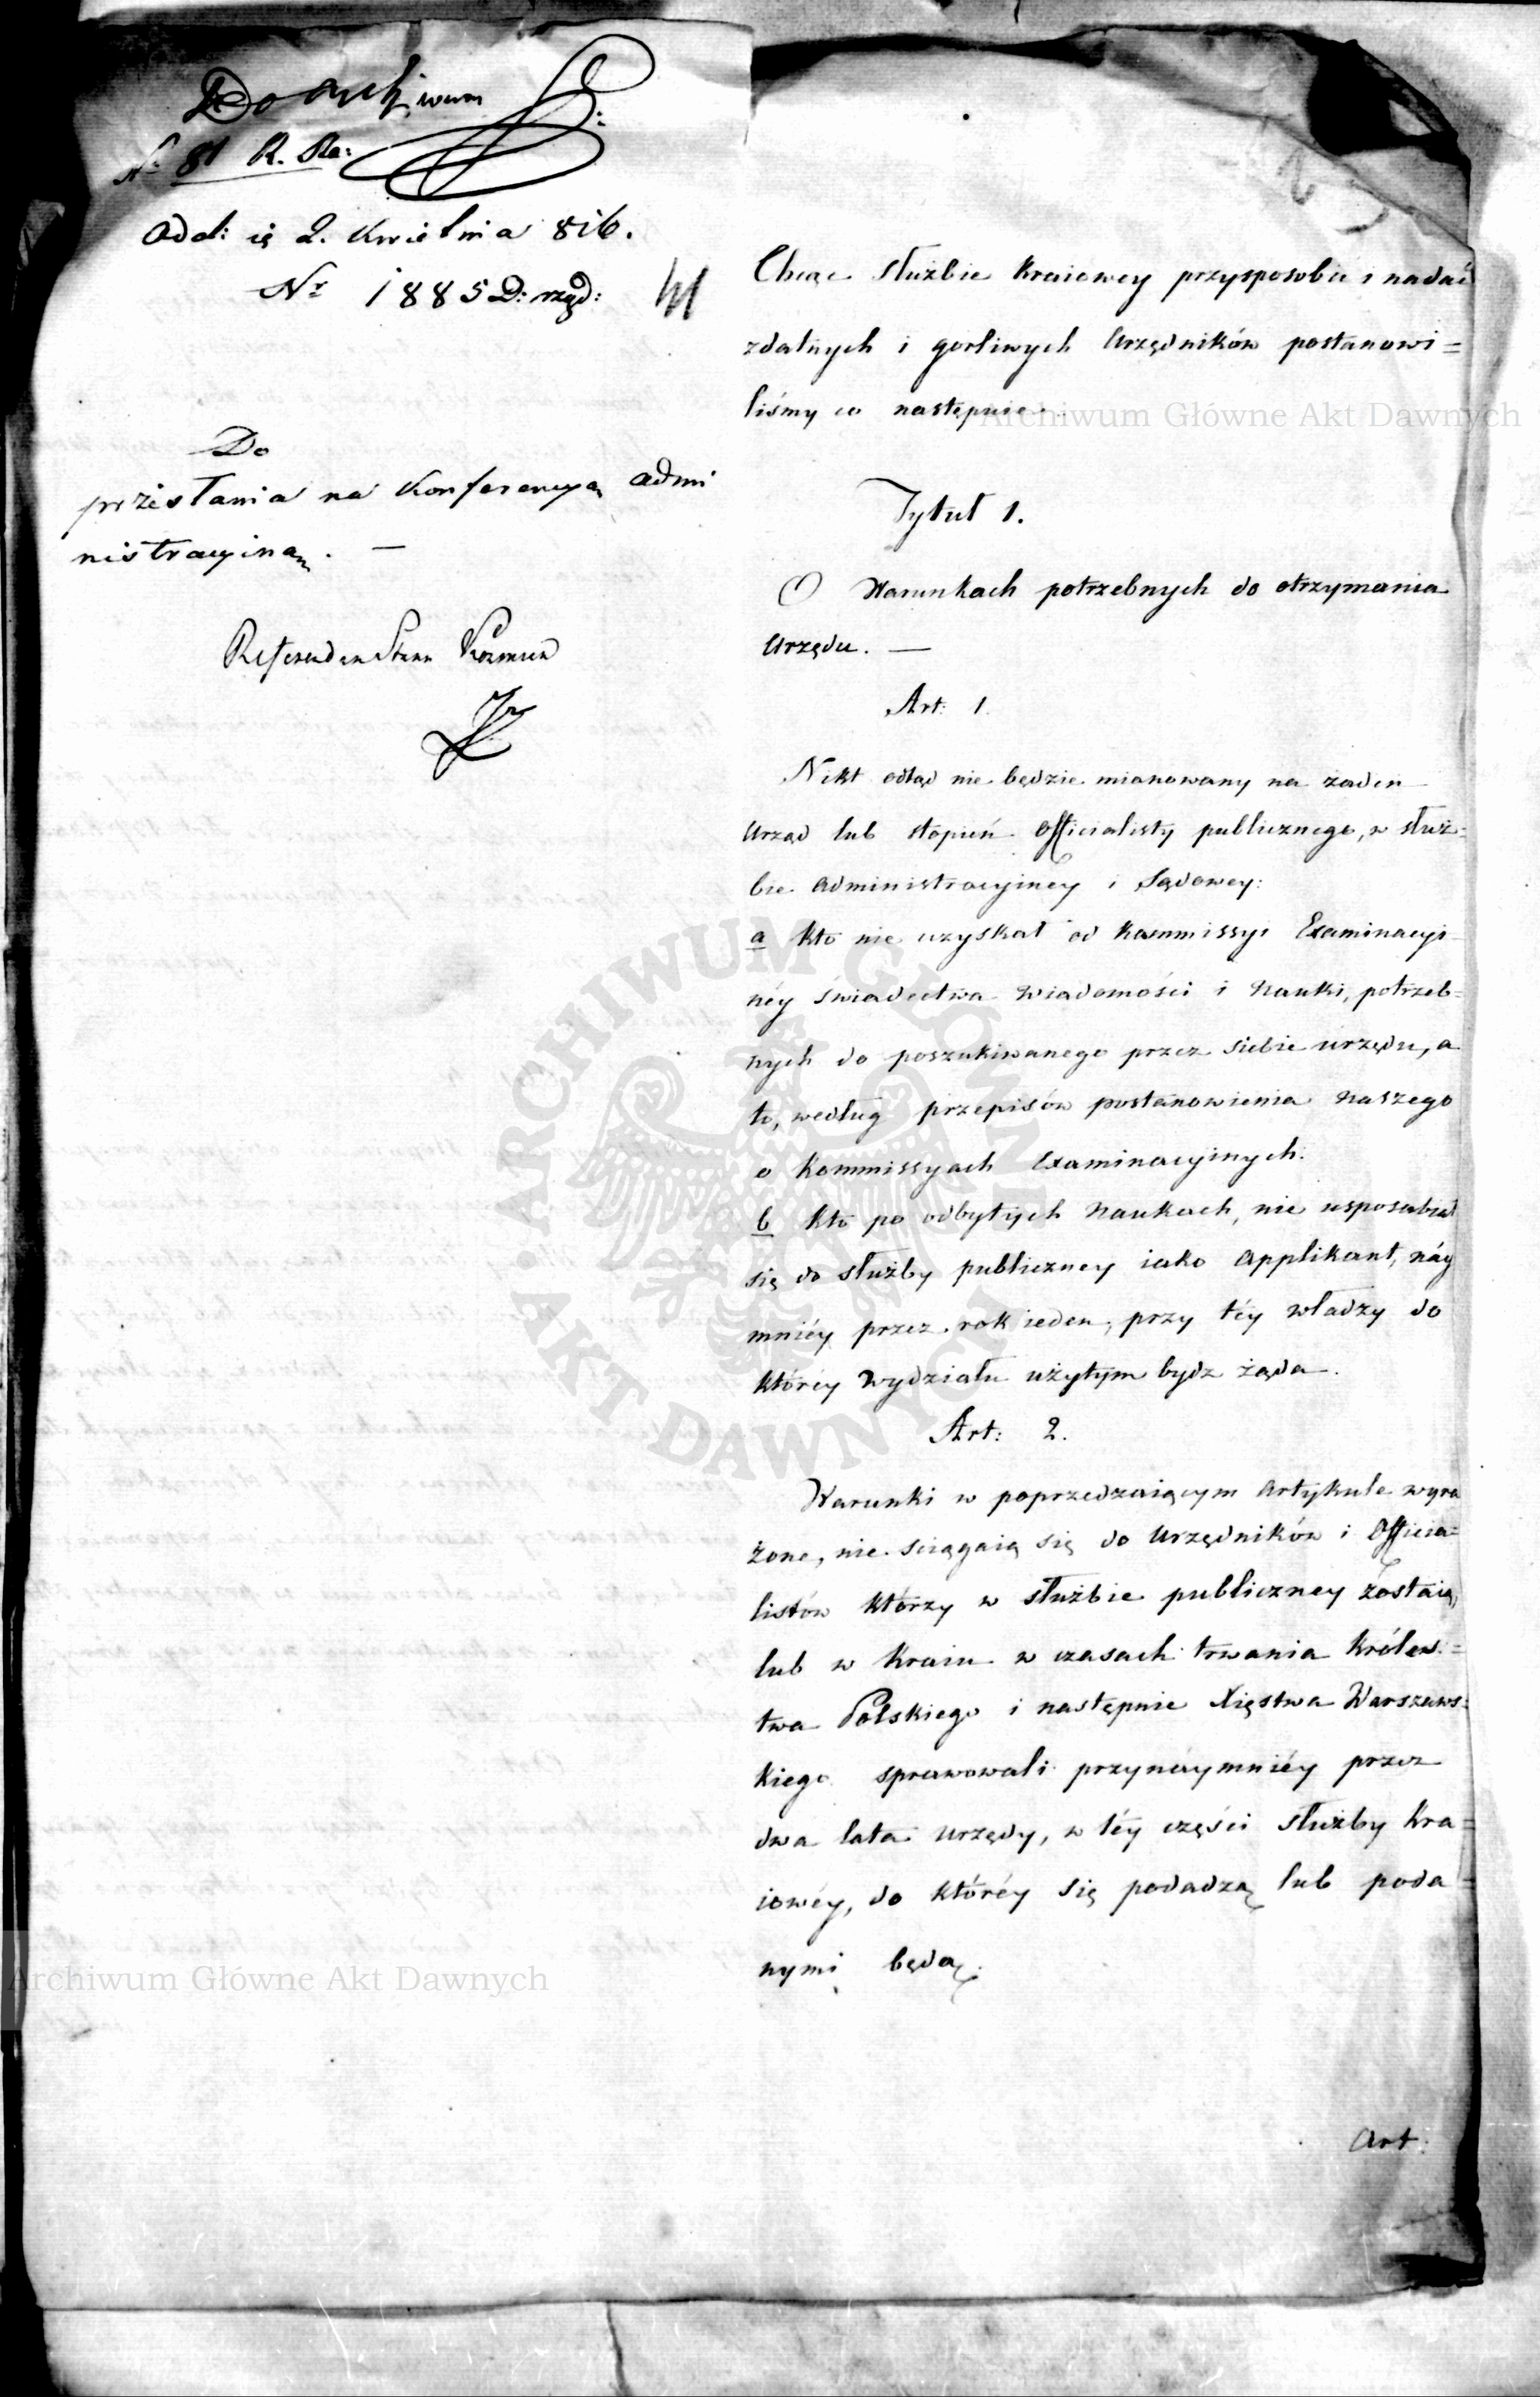 Do Archiwum
Nr 81 R. Re:
Odd: is 2. Kwietnia 816.
Nr 1885 D: rząd:
Do
przesłania na Konferencyą admi
nistracyiną. —
Referendarz Stanu Kozmian
Chcąc służbie kraiowey przysposobić i nadać
zdatnych i gorliwych Urzędników postanowi=
liśmy co następuie.
Tytuł 1.
O Warunkach potrzebnych do otrzymania
Urzędu. —
Art: 1.
Nikt odtąd nie będzie mianowany na żaden
Urząd lub stopień Officialisty publicznego, w służ=
bie administracyiney i Sądowey:
a kto nie uzyskał od Kommissyi Examinacyi
néy świadectwa wiadomości i Nauki, potrzeb=
nych do poszukiwanego przez siebie urzędu, a
to, według przepisów postanowienia Naszego
o Kommissyach Examinacyinych.
b kto po odbytych Naukach, nie usposabiał
się do służby publiczney iako Applikant, náy
mniéy przez rok ieden, przy téy władzy do
któréy Wydziału użytym bydz żąda.
Art: 2.
Warunki w poprzedzaiącym Artykule wyra
żone, nie sciągaią się do Urzędników i Officia=
listów którzy w służbie publiczney zostaią,
lub w Kraiu w czasach trwania Królews=
twa Polskiego i następnie Xięstwa Warszaws=
kiego sprawowali przynáymniéy przez
dwa lata urzędy, w téy części służby Kra=
iowéy, do któréy się podadzą lub poda=
nymi będą.
Art:
Archiwum Główne Akt Dawnych
Archiwum Główne Akt Dawnych
• ARCHIWUM GŁÓWNE • AKT DAWNYCH